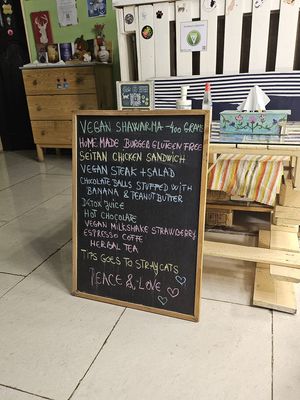 VEGAN SHAWARMA -400 GRAMS
HOME MADE BURGER GLUTEEN FREE
SEITAN CHICKEN SANDWICH
VEGAN STEAK + SALAD
CHOCOLATE BALLS STUFFED WITH
BANANA & PEANUT BUTTER
DETOX JUICE
HOT CHOCOLATE
VEGAN MILKSHAKE STRAWBERRY
ESPRESSO COFFE
HERBAL TEA
TIPS GOES TO STRAY CATS
PEACE & LOVE